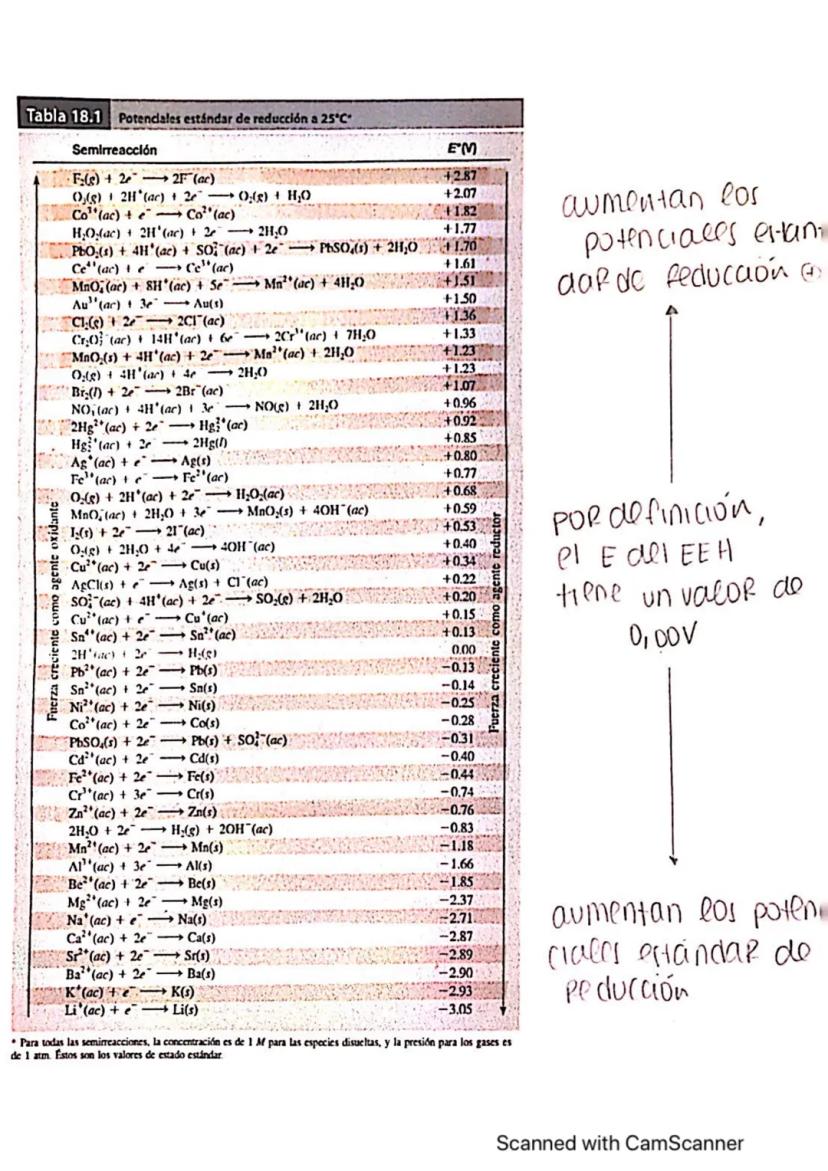 Tabla 18.1 Potenciales estándar de reducción a 25°C*
Semirreacción E°(V)
F₂(g) + 2e⁻ ⟶ 2F⁻(ac) +2.87
O₃(g) + 2H⁺(ac) + 2e⁻ ⟶ O₂(g) + H₂O +2.07
Co³⁺(ac) + e⁻ ⟶ Co²⁺(ac) +1.82
H₂O₂(ac) + 2H⁺(ac) + 2e⁻ ⟶ 2H₂O +1.77
PbO₂(s) + 4H⁺(ac) + SO₄²⁻(ac) + 2e⁻ ⟶ PbSO₄(s) + 2H₂O +1.70
Ce⁴⁺(ac) + e⁻ ⟶ Ce³⁺(ac) +1.61
MnO₄⁻(ac) + 8H⁺(ac) + 5e⁻ ⟶ Mn²⁺(ac) + 4H₂O +1.51
Au³⁺(ac) + 3e⁻ ⟶ Au(s) +1.50
Cl₂(g) + 2e⁻ ⟶ 2Cl⁻(ac) +1.36
Cr₂O₇²⁻(ac) + 14H⁺(ac) + 6e⁻ ⟶ 2Cr³⁺(ac) + 7H₂O +1.33
MnO₂(s) + 4H⁺(ac) + 2e⁻ ⟶ Mn²⁺(ac) + 2H₂O +1.23
O₂(g) + 4H⁺(ac) + 4e⁻ ⟶ 2H₂O +1.23
Br₂(l) + 2e⁻ ⟶ 2Br⁻(ac) +1.07
NO₃⁻(ac) + 4H⁺(ac) + 3e⁻ ⟶ NO(g) + 2H₂O +0.96
2Hg²⁺(ac) + 2e⁻ ⟶ Hg₂²⁺(ac) +0.92
Hg₂²⁺(ac) + 2e⁻ ⟶ 2Hg(l) +0.85
Ag⁺(ac) + e⁻ ⟶ Ag(s) +0.80
Fe³⁺(ac) + e⁻ ⟶ Fe²⁺(ac) +0.77
O₂(g) + 2H⁺(ac) + 2e⁻ ⟶ H₂O₂(ac) +0.68
MnO₄⁻(ac) + 2H₂O + 3e⁻ ⟶ MnO₂(s) + 4OH⁻(ac) +0.59
I₂(s) + 2e⁻ ⟶ 2I⁻(ac) +0.53
O₂(g) + 2H₂O + 4e⁻ ⟶ 4OH⁻(ac) +0.40
Cu²⁺(ac) + 2e⁻ ⟶ Cu(s) +0.34
AgCl(s) + e⁻ ⟶ Ag(s) + Cl⁻(ac) +0.22
SO₄²⁻(ac) + 4H⁺(ac) + 2e⁻ ⟶ SO₂(g) + 2H₂O +0.20
Cu²⁺(ac) + e⁻ ⟶ Cu⁺(ac) +0.15
Sn⁴⁺(ac) + 2e⁻ ⟶ Sn²⁺(ac) +0.13
2H⁺(ac) + 2e⁻ ⟶ H₂(g) 0.00
Pb²⁺(ac) + 2e⁻ ⟶ Pb(s) −0.13
Sn²⁺(ac) + 2e⁻ ⟶ Sn(s) −0.14
Ni²⁺(ac) + 2e⁻ ⟶ Ni(s) −0.25
Co²⁺(ac) + 2e⁻ ⟶ Co(s) −0.28
PbSO₄(s) + 2e⁻ ⟶ Pb(s) + SO₄²⁻(ac) −0.31
Cd²⁺(ac) + 2e⁻ ⟶ Cd(s) −0.40
Fe²⁺(ac) + 2e⁻ ⟶ Fe(s) −0.44
Cr³⁺(ac) + 3e⁻ ⟶ Cr(s) −0.74
Zn²⁺(ac) + 2e⁻ ⟶ Zn(s) −0.76
2H₂O + 2e⁻ ⟶ H₂(g) + 2OH⁻(ac) −0.83
Mn²⁺(ac) + 2e⁻ ⟶ Mn(s) −1.18
Al³⁺(ac) + 3e⁻ ⟶ Al(s) −1.66
Be²⁺(ac) + 2e⁻ ⟶ Be(s) −1.85
Mg²⁺(ac) + 2e⁻ ⟶ Mg(s) −2.37
Na⁺(ac) + e⁻ ⟶ Na(s) −2.71
Ca²⁺(ac) + 2e⁻ ⟶ Ca(s) −2.87
Sr²⁺(ac) + 2e⁻ ⟶ Sr(s) −2.89
Ba²⁺(ac) + 2e⁻ ⟶ Ba(s) −2.90
K⁺(ac) + e⁻ ⟶ K(s) −2.93
Li⁺(ac) + e⁻ ⟶ Li(s) −3.05
Fuerza creciente como agente oxidante
Fuerza creciente como agente reductor
* Para todas las semirreacciones, la concentración es de 1 M para las especies disueltas, y la presión para los gases es
de 1 atm. Éstos son los valores de estado estándar.
aumentan los
potenciales están
dar de reducción (+)
por definición,
el E del EEH
tiene un valor de
0,00V
aumentan los poten
ciales estándar de
reducción
Scanned with CamScanner